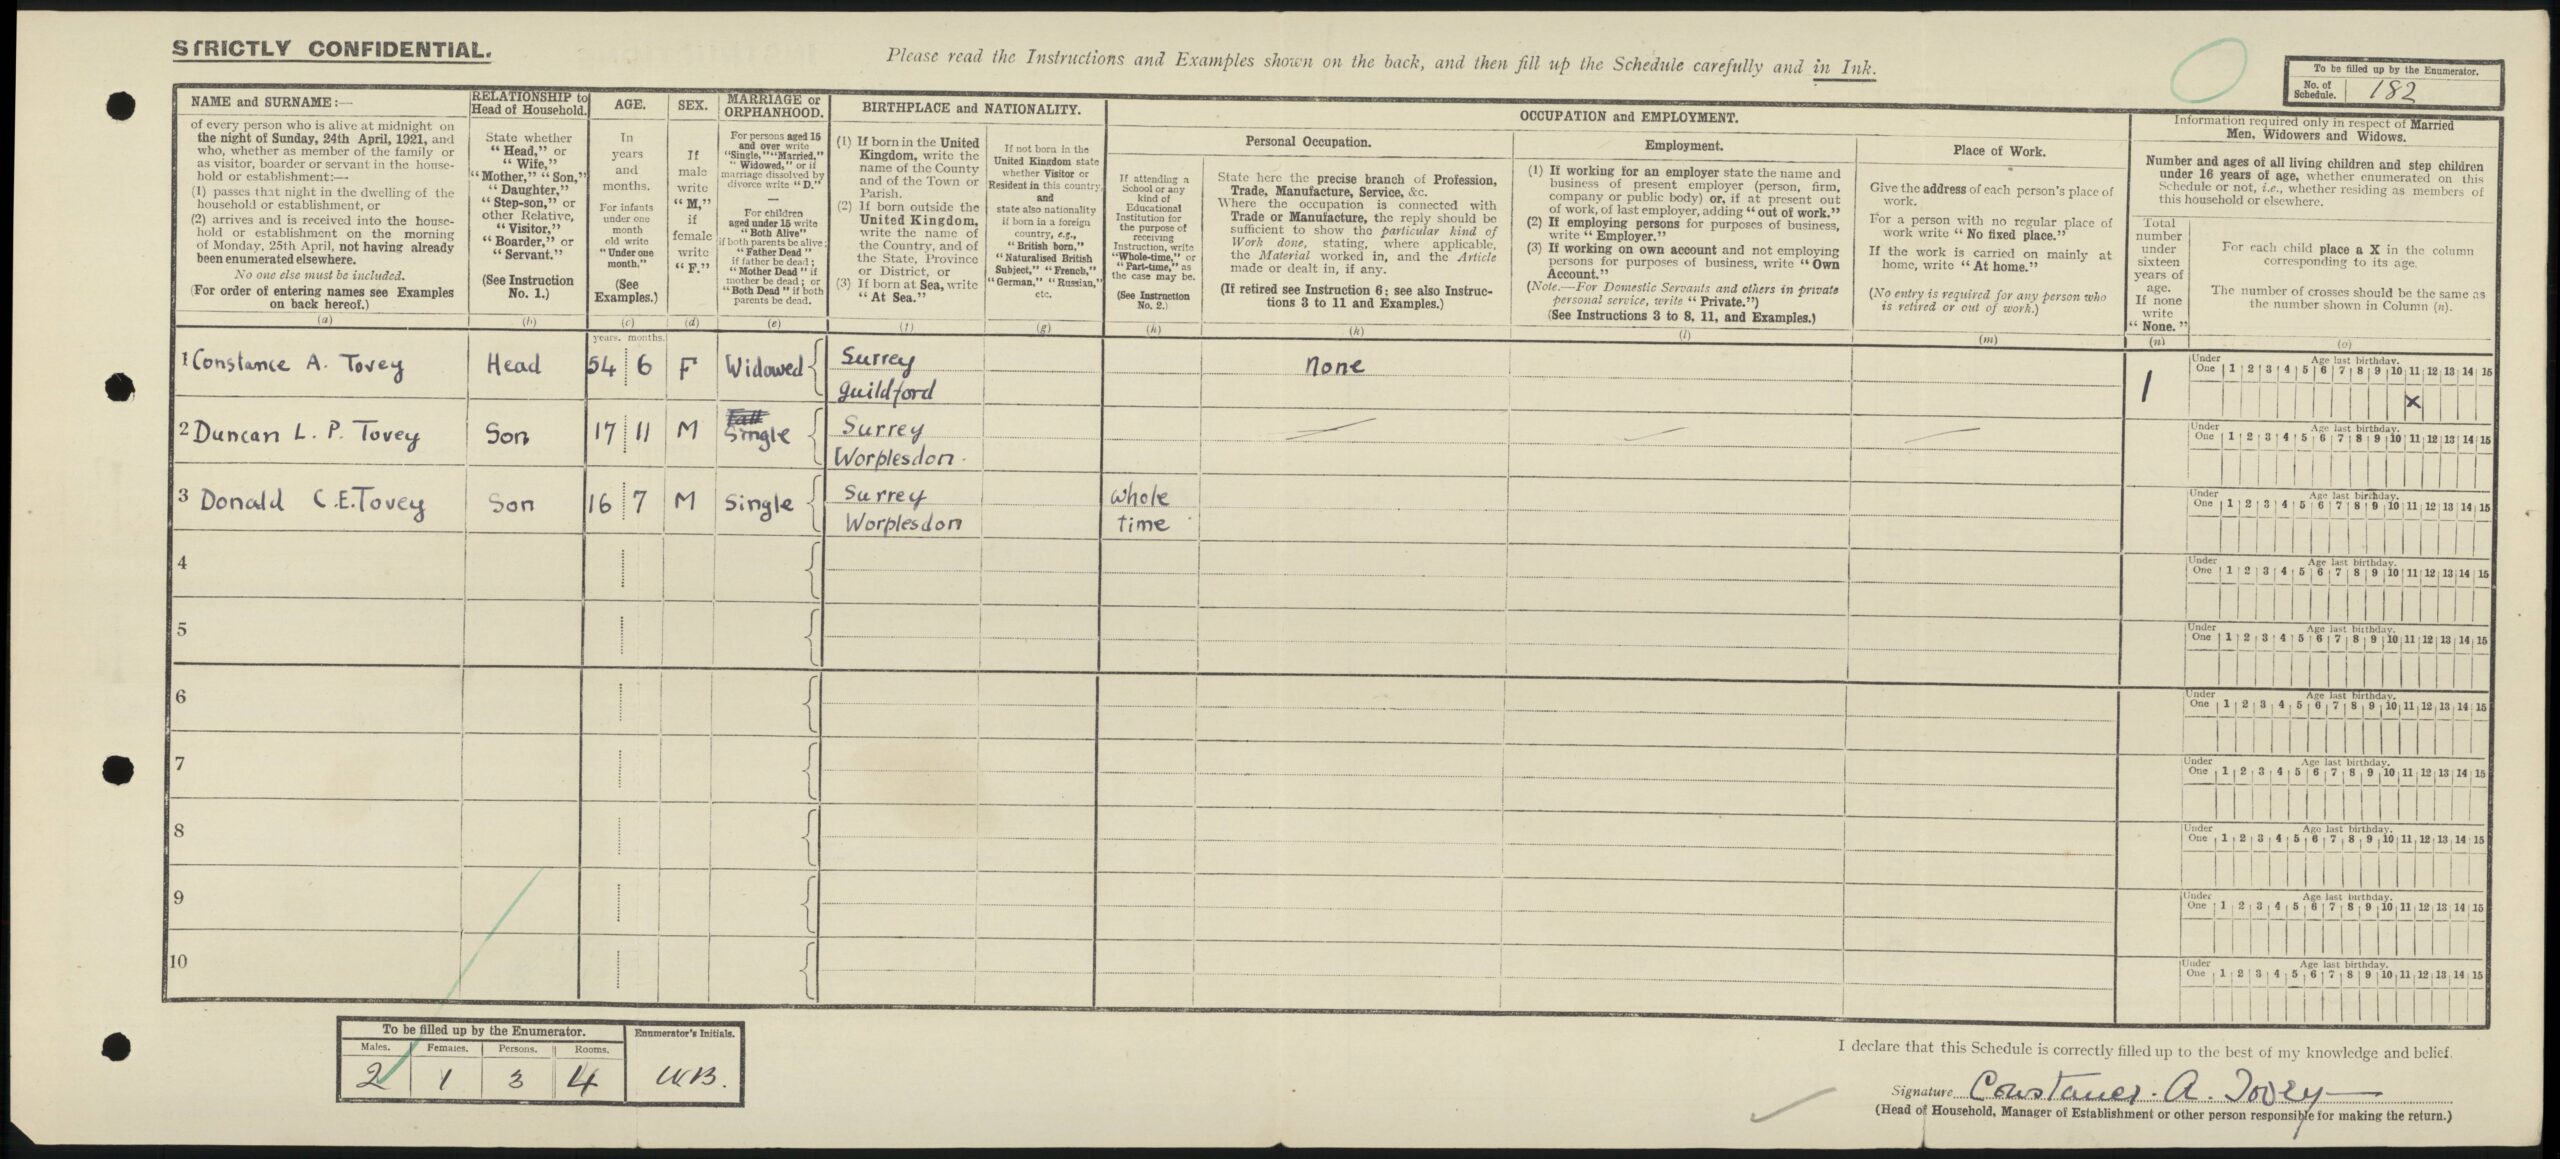 STRICTLY CONFIDENTIAL.
Please read the Instructions and Examples shown on the back, and then fill up the Schedule carefully and in Ink.
To be filled up by the Enumerator.
No. of Schedule. 182
NAME and SURNAME:—
of every person who is alive at midnight on
the night of Sunday, 24th April, 1921, and
who, whether as member of the family or
as visitor, boarder or servant in the house-
hold or establishment:—
(1) passes that night in the dwelling of the
household or establishment, or
(2) arrives and is received into the house-
hold or establishment on the morning
of Monday, 25th April, not having already
been enumerated elsewhere.
No one else must be included.
(For order of entering names see Examples
on back hereof.)
(a)
RELATIONSHIP to
Head of Household.
State whether
"Head," or
"Wife,"
"Mother," "Son,"
"Daughter,"
"Step-son," or
other Relative,
"Visitor,"
"Boarder," or
"Servant."
(See Instruction
No. 1.)
(b)
AGE.
In
years
and
months.
For infants
under one
month
old write
"Under one
month."
(See
Examples.)
(c)
SEX.
If
male
write
"M,"
if
female
write
"F."
(d)
MARRIAGE or
ORPHANHOOD.
For persons aged 15
and over write
"Single," "Married,"
"Widowed," or if
marriage dissolved by
divorce write "D."
—
For children
aged under 15 write
"Both Alive"
if both parents be alive;
"Father Dead"
if father be dead;
"Mother Dead" if
mother be dead; or
"Both Dead" if both
parents be dead.
(e)
BIRTHPLACE and NATIONALITY.
(1) If born in the United
Kingdom, write the
name of the County
and of the Town or
Parish.
(2) If born outside the
United Kingdom,
write the name of
the Country, and of
the State, Province
or District, or
(3) If born at Sea, write
"At Sea."
(f)
If not born in the
United Kingdom state
whether Visitor or
Resident in this country,
and
state also nationality
if born in a foreign
country, e.g.,
"British born,"
"Naturalised British
Subject," "French,"
"German," "Russian,"
etc.
(g)
OCCUPATION and EMPLOYMENT.
If attending a
School or any
kind of
Educational
Institution for
the purpose of
receiving
Instruction, write
"Whole-time," or
"Part-time," as
the case may be.
(See Instruction
No. 2.)
(h)
Personal Occupation.
State here the precise branch of Profession,
Trade, Manufacture, Service, &c.
Where the occupation is connected with
Trade or Manufacture, the reply should be
sufficient to show the particular kind of
Work done, stating, where applicable,
the Material worked in, and the Article
made or dealt in, if any.
(If retired see Instruction 6; see also Instruc-
tions 3 to 11 and Examples.)
(k)
Employment.
(1) If working for an employer state the name and
business of present employer (person, firm,
company or public body) or, if at present out
of work, of last employer, adding "out of work."
(2) If employing persons for purposes of business,
write "Employer."
(3) If working on own account and not employing
persons for purposes of business, write "Own
Account."
(Note.—For Domestic Servants and others in private
personal service, write "Private.")
(See Instructions 3 to 8, 11, and Examples.)
(l)
Place of Work.
Give the address of each person's place of
work.
For a person with no regular place of
work write "No fixed place."
If the work is carried on mainly at
home, write "At home."
(No entry is required for any person who
is retired or out of work.)
(m)
Information required only in respect of Married
Men, Widowers and Widows.
Number and ages of all living children and step children
under 16 years of age, whether enumerated on this
Schedule or not, i.e., whether residing as members of
this household or elsewhere.
Total
number
under
sixteen
years of
age.
If none
write
"None."
(n)
For each child place a X in the column
corresponding to its age.
The number of crosses should be the same as
the number shown in Column (n).
(o)
years. months.
Under One Age last birthday. 1 2 3 4 5 6 7 8 9 10 11 12 13 14 15
1 Constance A. Tovey Head 54 6 F Widowed Surrey Guildford None 1 X
Under One Age last birthday. 1 2 3 4 5 6 7 8 9 10 11 12 13 14 15
2 Duncan L. P. Tovey Son 17 11 M Single Surrey Worplesdon.
Under One Age last birthday. 1 2 3 4 5 6 7 8 9 10 11 12 13 14 15
3 Donald C.E. Tovey Son 16 7 M Single Surrey Worplesdon whole time
Under One Age last birthday. 1 2 3 4 5 6 7 8 9 10 11 12 13 14 15
4
Under One Age last birthday. 1 2 3 4 5 6 7 8 9 10 11 12 13 14 15
5
Under One Age last birthday. 1 2 3 4 5 6 7 8 9 10 11 12 13 14 15
6
Under One Age last birthday. 1 2 3 4 5 6 7 8 9 10 11 12 13 14 15
7
Under One Age last birthday. 1 2 3 4 5 6 7 8 9 10 11 12 13 14 15
8
Under One Age last birthday. 1 2 3 4 5 6 7 8 9 10 11 12 13 14 15
9
Under One Age last birthday. 1 2 3 4 5 6 7 8 9 10 11 12 13 14 15
10
To be filled up by the Enumerator.
Males. Females. Persons. Rooms.
2 1 3 4
Enumerator's Initials.
W.B.
I declare that this Schedule is correctly filled up to the best of my knowledge and belief.
Signature Constance. A. Tovey
(Head of Household, Manager of Establishment or other person responsible for making the return.)